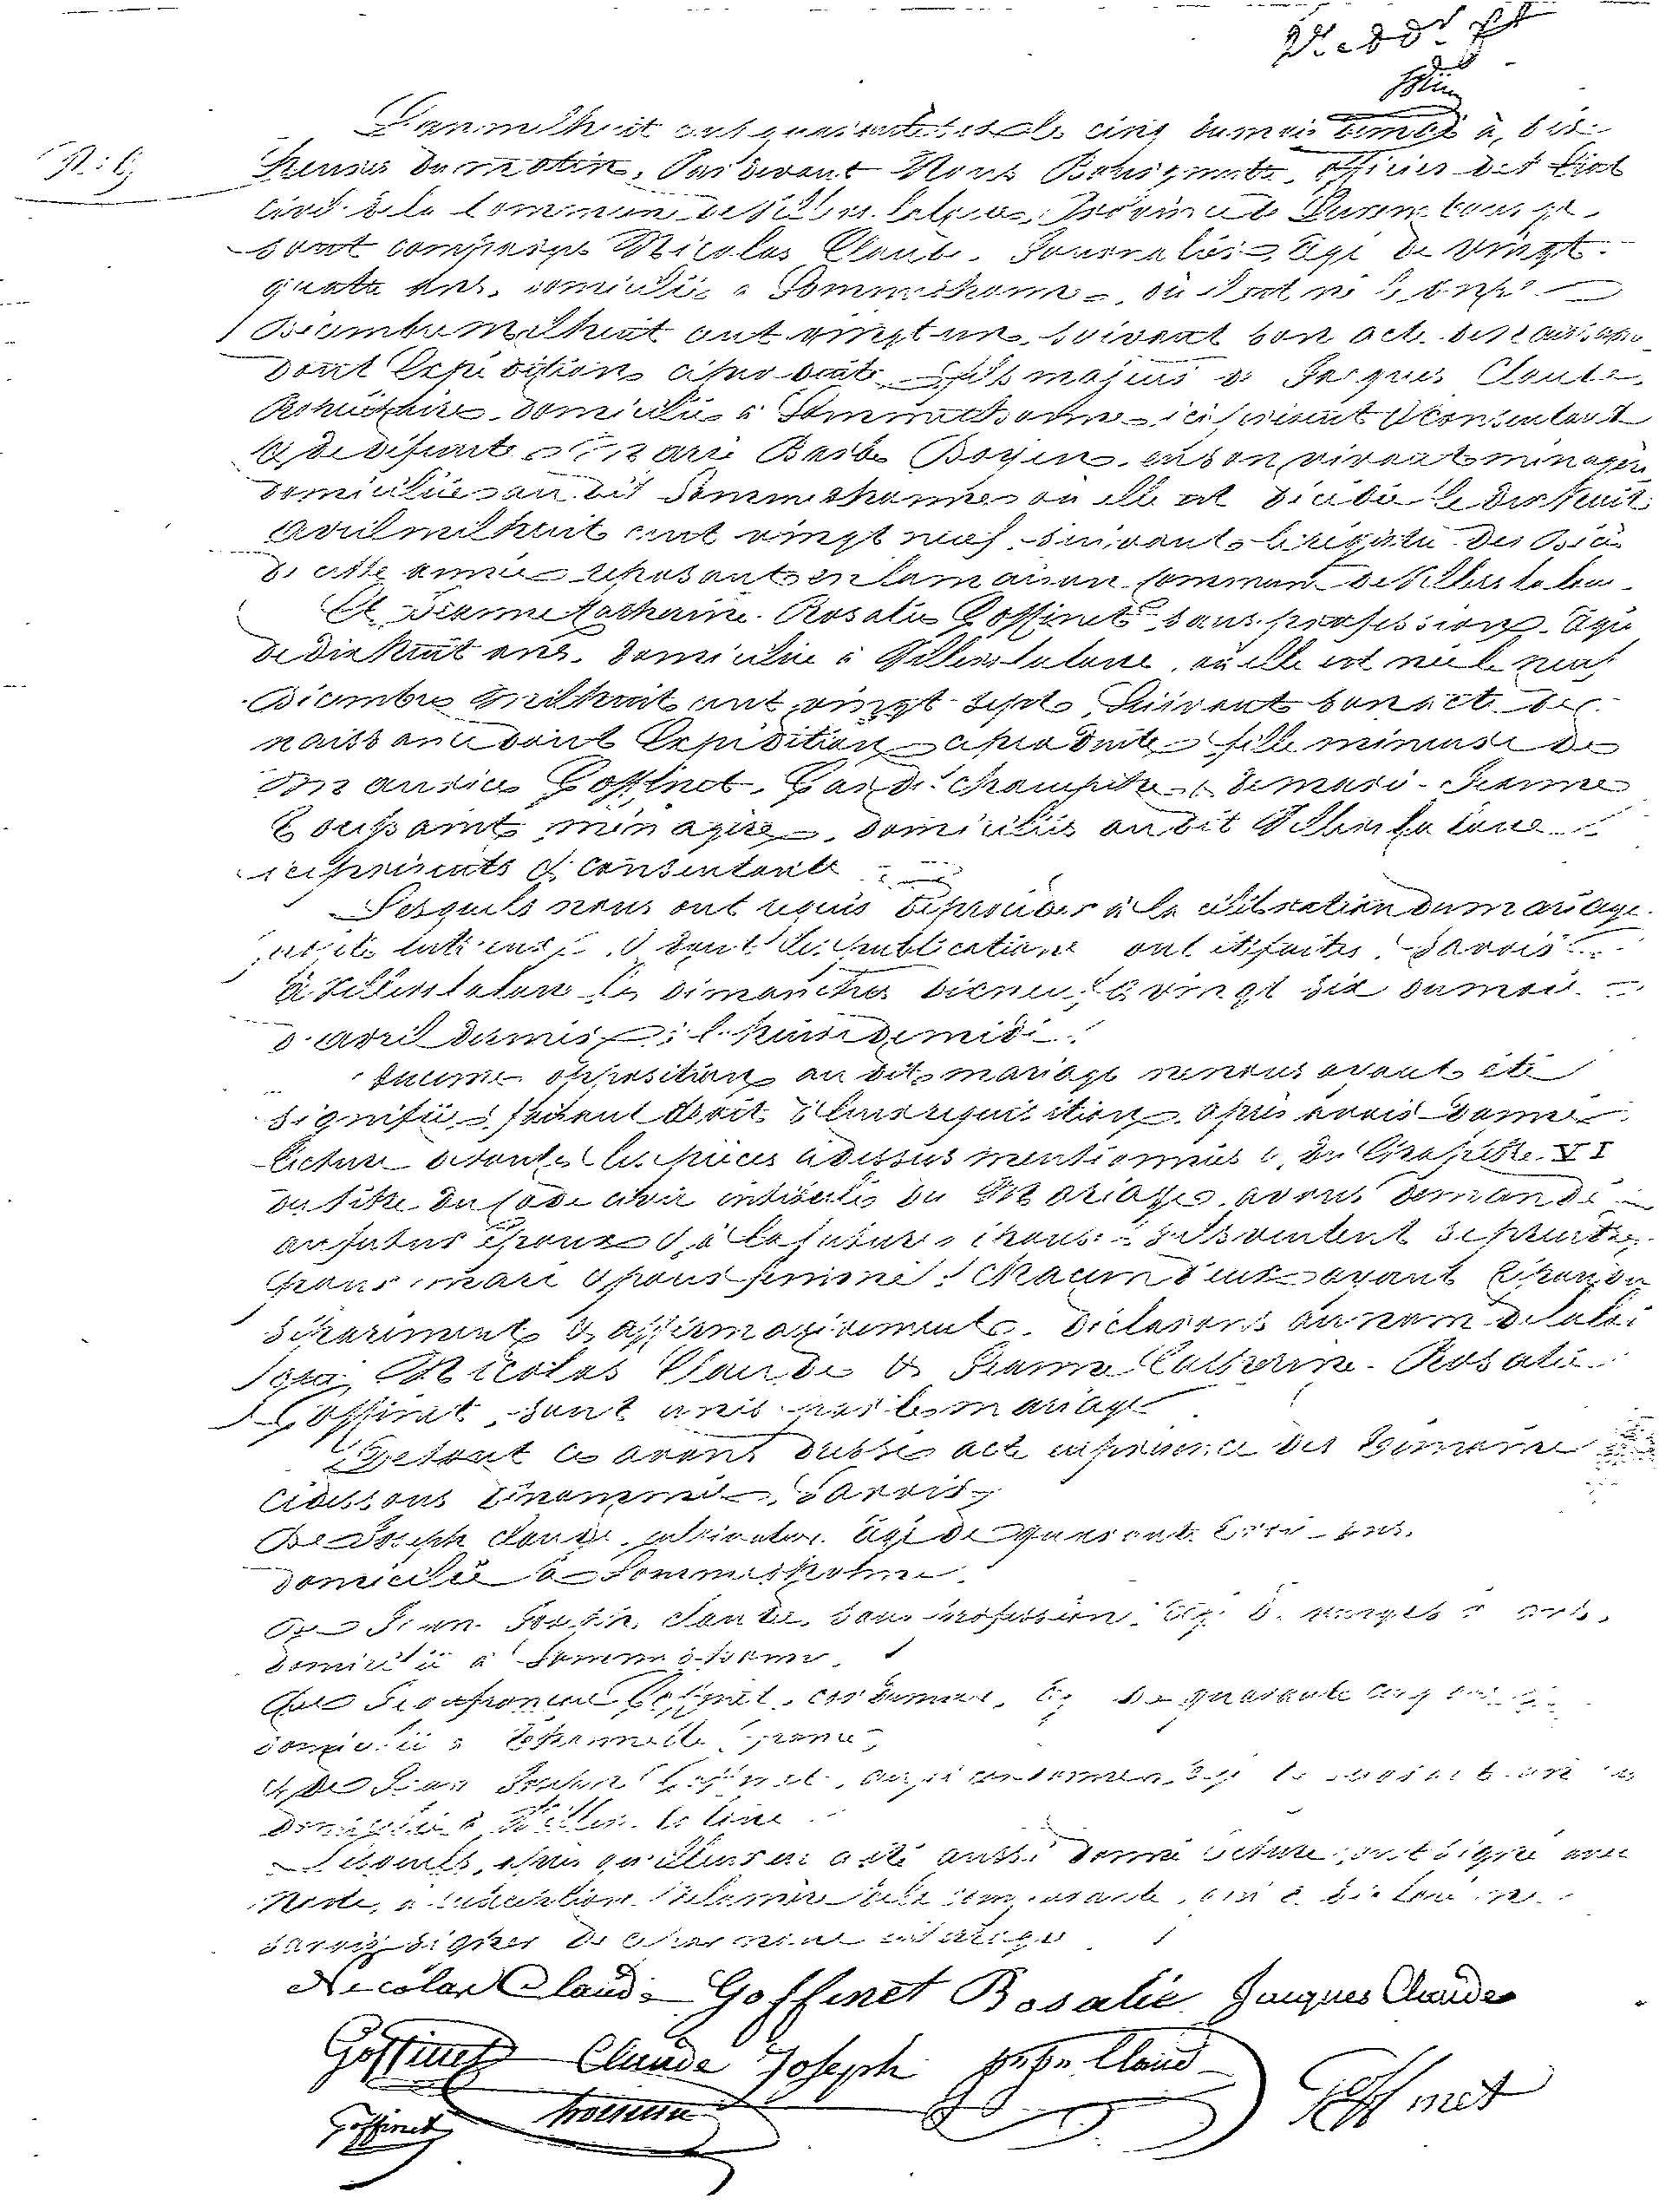 N.: 6
L'an mil huit cent quarante six le cinq du mois de mai à dix
heures du matin, Par devant Nous Bourgmestre, officier de l'Etat
civil de la commune de Villers la loue, Province de Luxembourg
sont comparus Nicolas Claude, Journalier, âgé de vingt
quatre ans, domicilié à Sommethonne, où il est né le onze
Décembre Mil huit cent vingt un, suivant son acte de naissance
dont l'expédition a été produite, fils majeur de Jacques Claude,
Propriétaire, domicilié à Sommethonne, ici présent et consentant
et de défunte Marie Barbe Boyen, en son vivant ménagère
domiciliée au dit Sommethonne où elle est décédée le dix huit
avril mil huit cent vingt neuf, suivant le registre des Décès
de cette année reposant en la maison commune de Villers la loue.
Et Jeanne Catherine Rosalie Goffinet, sans profession, âgée
de dix huit ans, domiciliée à Villers la loue, où elle est née le neuf
Décembre mil huit cent vingt sept, suivant son acte de
naissance dont l'expédition a produite, fille mineure de
Maurice Goffinet, Garde champêtre, & de Marie Jeanne
Toussaint ménagère, domiciliés au dit Villers la loue
ici présents et consentants
Lesquels nous ont requis de procéder à la célébration du mariage
projeté entr'eux, & dont les publications ont été faites, Savoir:
à Villers la loue les dimanches dix neuf & vingt six du mois
d'avril dernier, à l'heure de midi.
Aucune opposition au dit mariage ne nous ayant été
signifiée, faisant droit à leur réquisition, après avoir donné
lecture de toutes les pièces ci dessus mentionnées & du Chapitre VI
du titre du Code civil intitulé du Mariage, avons demandé
au futur époux & à la future épouse s'ils veulent se prendre
pour mari & pour femme: chacun d'eux ayant répondu
séparément & affirmativement, déclarons au nom de la loi
que Nicolas Claude & Jeanne Catherine Rosalie
Goffinet, sont unis par le mariage
De tout ce avons dressé acte en présence des témoins
ci dessous dénommés, Savoir,
De Joseph Claude, cultivateur, âgé de quarante trois ans,
domicilié à Sommethonne.
De Jean Claude, sans profession, âgé de vingt ans,
domicilié à Sommethonne.
De Goffinet, cordonnier, âgé de quarante cinq ans
domicilié à France,
& de Jean Goffinet, aussi cordonnier, âgé de ans
domicilié à Villers la loue
Lesquels, après qu'il leur en a été aussi donné lecture, ont signé avec
Nous, à l'exception de la mère de la comparante, qui a déclaré ne
savoir signer de ce interpellée
Nicolas Claude Goffinet Rosalie Jacques Claude
Goffinet Claude Joseph Claude Goffinet
Goffinet